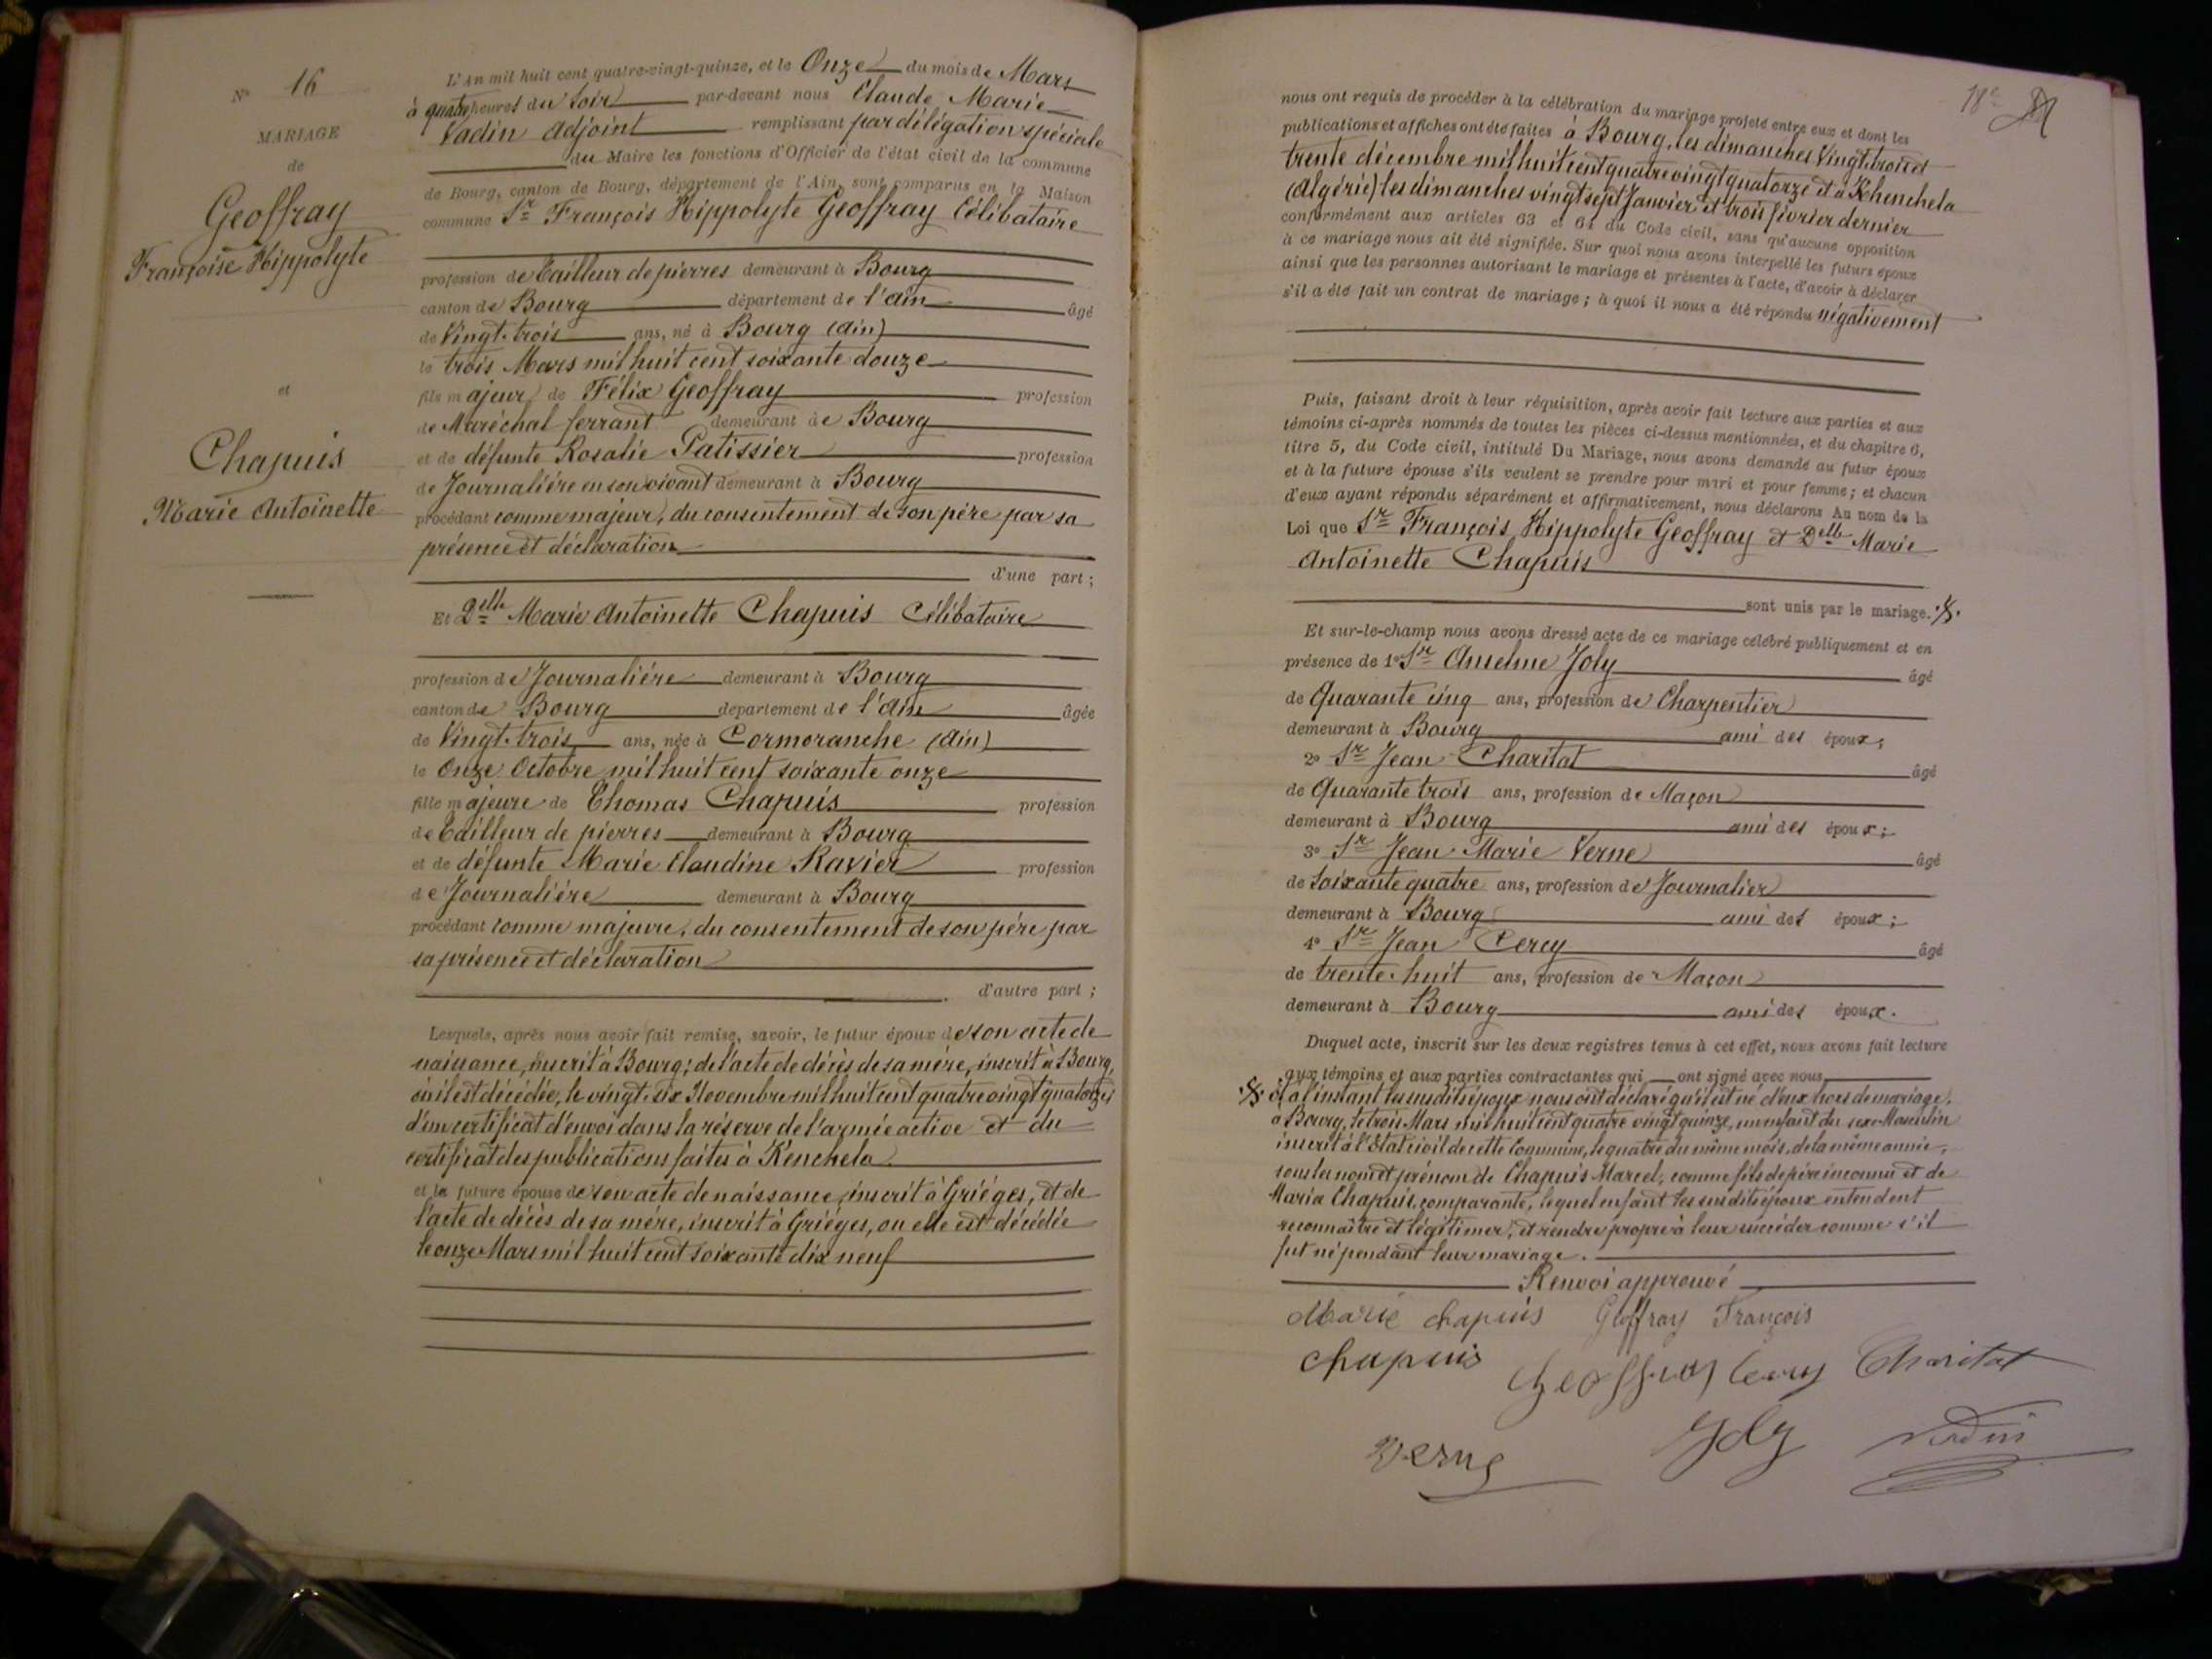 N° 16
MARIAGE
de
Geoffray
Françoise Hippolyte
et
Chapuis
Marie Antoinette
L'An mil huit cent quatre-vingt-quinze, et le Onze du mois de Mars
à quatre heures du Soir par-devant nous Claude Marie
Vadin Adjoint remplissant par délégation spéciale
du Maire les fonctions d'Officier de l'état civil de la commune
de Bourg, canton de Bourg, département de l'Ain, sont comparus en la Maison
commune Sr François Hippolyte Geoffray Célibataire
profession de Tailleur de pierres demeurant à Bourg
canton de Bourg département de l'Ain âgé
de Vingt-trois ans, né à Bourg (Ain)
le trois Mars mil huit cent soixante douze
fils majeur de Félix Geoffray profession
de Maréchal ferrant demeurant à Bourg
et de défunte Rosalie Patissier profession
de Journalière en son vivant demeurant à Bourg
procédant comme majeur, du consentement de son père par sa
présence et déclaration
d'une part ;
Et Delle Marie Antoinette Chapuis Célibataire
profession de Journalière demeurant à Bourg
canton de Bourg département de l'Ain âgée
de Vingt-trois ans, née à Cormoranche (Ain)
le Onze Octobre mil huit cent soixante onze
fille majeure de Thomas Chapuis profession
de Tailleur de pierres demeurant à Bourg
et de défunte Marie Claudine Ravier profession
de Journalière demeurant à Bourg
procédant comme majeure, du consentement de son père par
sa présence et déclaration
d'autre part ;
Lesquels, après nous avoir fait remise, savoir, le futur époux de son acte de
naissance, inscrit à Bourg ; de l'acte de décès de sa mère, inscrit à Bourg,
où il est décédée, le vingt-six Novembre mil huit cent quatre vingt quatorze ;
d'un certificat d'envoi dans la réserve de l'armée active et du
certificat des publications faites à Kenchela
et la future épouse de son acte de naissance, inscrit à Griéges, et de
l'acte de décès de sa mère, inscrit à Griéges, ou elle est décédée
le onze Mars mil huit cent soixante dix neuf
18e
nous ont requis de procéder à la célébration du mariage projeté entre eux et dont les
publications et affiches ont été faites à Bourg, les dimanches Vingt-trois et
trente décembre mil huit cent quatre vingt quatorze et à Khenchela
(Algérie) les dimanches vingt sept Janvier et trois février dernier
conformément aux articles 63 et 64 du Code civil, sans qu'aucune opposition
à ce mariage nous ait été signifiée. Sur quoi nous avons interpellé les futurs époux
ainsi que les personnes autorisant le mariage et présentes à l'acte, d'avoir à déclarer
s'il a été fait un contrat de mariage ; à quoi il nous a été répondu négativement
Puis, faisant droit à leur réquisition, après avoir fait lecture aux parties et aux
témoins ci-après nommés de toutes les pièces ci-dessus mentionnées, et du chapitre 6,
titre 5, du Code civil, intitulé Du Mariage, nous avons demandé au futur époux
et à la future épouse s'ils veulent se prendre pour mari et pour femme ; et chacun
d'eux ayant répondu séparément et affirmativement, nous déclarons Au nom de la
Loi que Sr François Hippolyte Geoffray et Delle Marie
Antoinette Chapuis
sont unis par le mariage.
Et sur-le-champ nous avons dressé acte de ce mariage célébré publiquement et en
présence de 1° Sr Anselme Joly âgé
de Quarante cinq ans, profession de Charpentier
demeurant à Bourg ami des époux ;
2° Sr Jean Charitat âgé
de Quarante trois ans, profession de Maçon
demeurant à Bourg ami des époux ;
3° Sr Jean Marie Verne âgé
de Soixante quatre ans, profession de Journalier
demeurant à Bourg ami des époux ;
4° Sr Jean Cercy âgé
de trente-huit ans, profession de Maçon
demeurant à Bourg ami des époux.
Duquel acte, inscrit sur les deux registres tenus à cet effet, nous avons fait lecture
aux témoins et aux parties contractantes qui ont signé avec nous
et à l'instant les susdits époux nous ont déclaré qu'il est né d'eux hors de mariage,
à Bourg, le trois Mars mil huit cent quatre vingt quinze, un enfant du sexe Masculin
inscrit à l'Etat civil de cette Commune, le quatre du même mois, de la même année,
sous les nom et prénom de Chapuis Marcel, comme fils de père inconnu et de
Maria Chapuis, comparante, lequel enfant les susdits époux entendent
reconnaître et légitimer, et rendre propre à leur succéder comme s'il
fut né pendant leur mariage.
Renvoi approuvé
Marie chapuis Geoffray François
chapuis Geoffray Cercy Charitat
Verne Joly Vadin